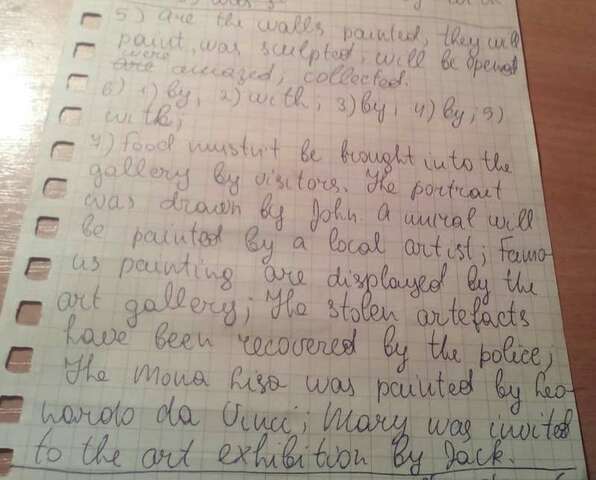 5) are the walls painted, they will
paint, was sculpted, will be opened
were
are amazed, collected.
6) 1) by, 2) with; 3) by, 4) by; 5)
with;
7) Food mustn't be brought into the
gallery by visitors. The portrait
was drawn by John. A mural will
be painted by a local artist; Famo-
us painting are displayed by the
art gallery; The stolen artefacts
have been recovered by the police;
The Mona Lisa was painted by Leo-
nardo da Vinci; Mary was invited
to the art exhibition by Jack.